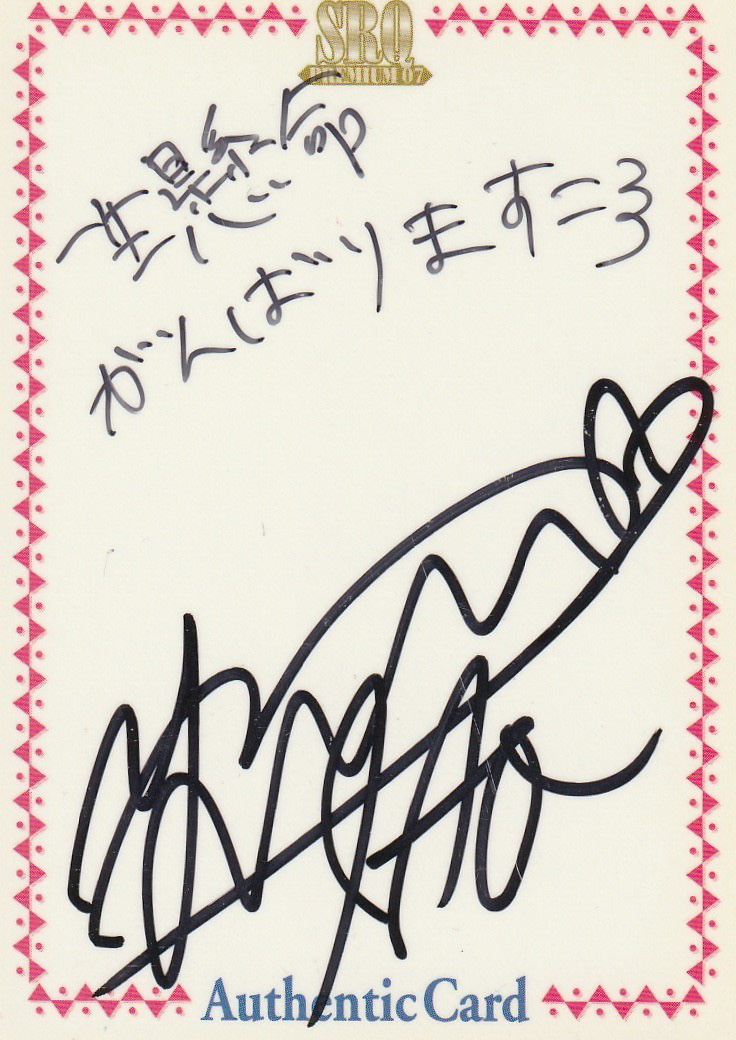 SRQ
PREMIUM 07
一生懸命
がんばります
Authentic Card